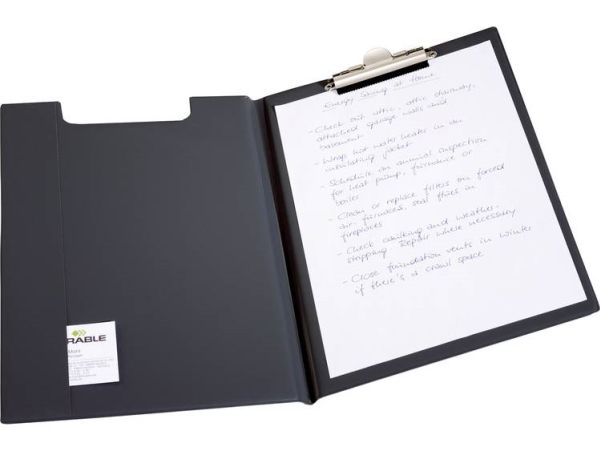 Energy Saving at Home
- Check out attic, attic stairway,
attached garage walls and
basement
- Wrap hot water heater in an
insulating jacket
- Schedule an annual inspection
for heat pump, furnance or
boiler
- Clean or replace filters on forced
air-furnaces, seal flues in
fireplaces
- Check caulking and weather-
stripping. Repair where necessary
- Close foundation vents in winter
if there's a crawl space
RABLE